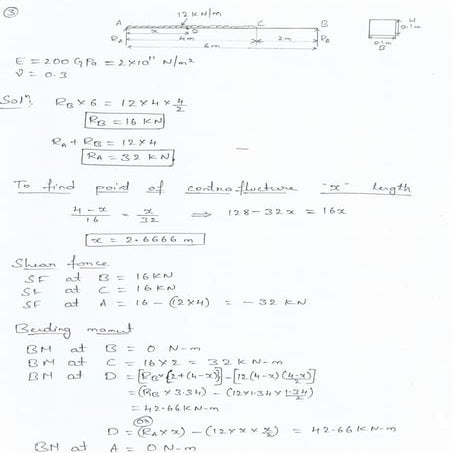 ③
12 KN/m
A C B
x D
RA 4m 2m RB
6m
H
0.1m
0.1m
B
E = 200 GPa = 2×10¹¹ N/m²
ν = 0.3
Solⁿ: RB × 6 = 12 × 4 × 4/2
RB = 16 KN
RA + RB = 12×4
RA = 32 KN
To find point of contraflucture "x" length
4-x/16 = x/32 ⇒ 128-32x = 16x
x = 2.6666 m
Shear force
SF at B = 16 KN
SF at C = 16 KN
SF at A = 16 - (12×4) = -32 KN
Bending moment
BM at B = 0 N-m
BM at C = 16×2 = 32 KN-m
BM at D = [RB*{2+(4-x)}] - [12(4-x)(4-x/2)]
= (RB × 3.34) - (12×1.34×1.34/2)
= 42.66 KN-m
(or)
D = (RA×x) - (12×x×x/2) = 42.66 KN-m
BM at A = 0 N-m